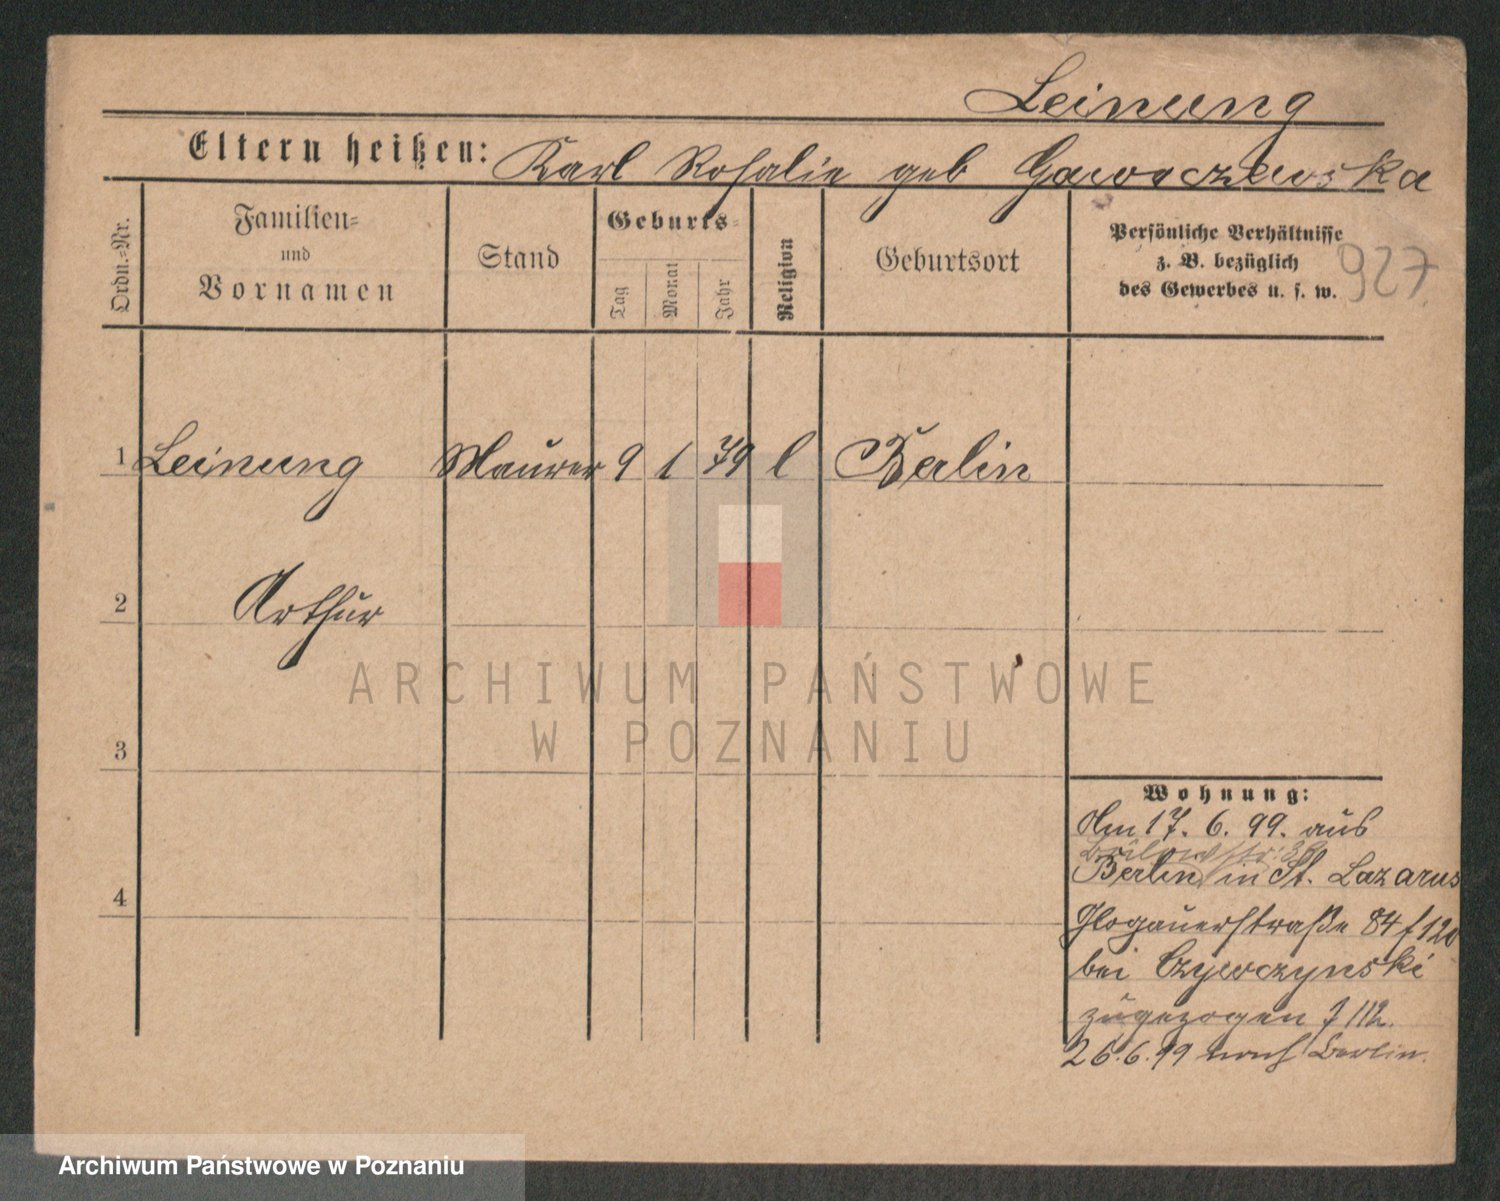 Leinung
Eltern heißen: Karl Rosalie geb Gaworczewska
Ordn.-Nr.
Familien- und Vornamen
Stand
Geburts-
Tag
Monat
Jahr
Religion
Geburtsort
Persönliche Verhältnisse
z. B. bezüglich
des Gewerbes u. s. w.
927
1 Leinung Maurer 9 1 79 l Berlin
2 Arthur
3
4
Wohnung:
Am 17. 6. 99. aus
Bülowstr. 38
Berlin in St. Lazarus
Glogauerstraße 84 f 120
bei Czywczynski
zugezogen J 112.
26.6.99 nach Berlin.
ARCHIWUM PAŃSTWOWE
W POZNANIU
Archiwum Państwowe w Poznaniu